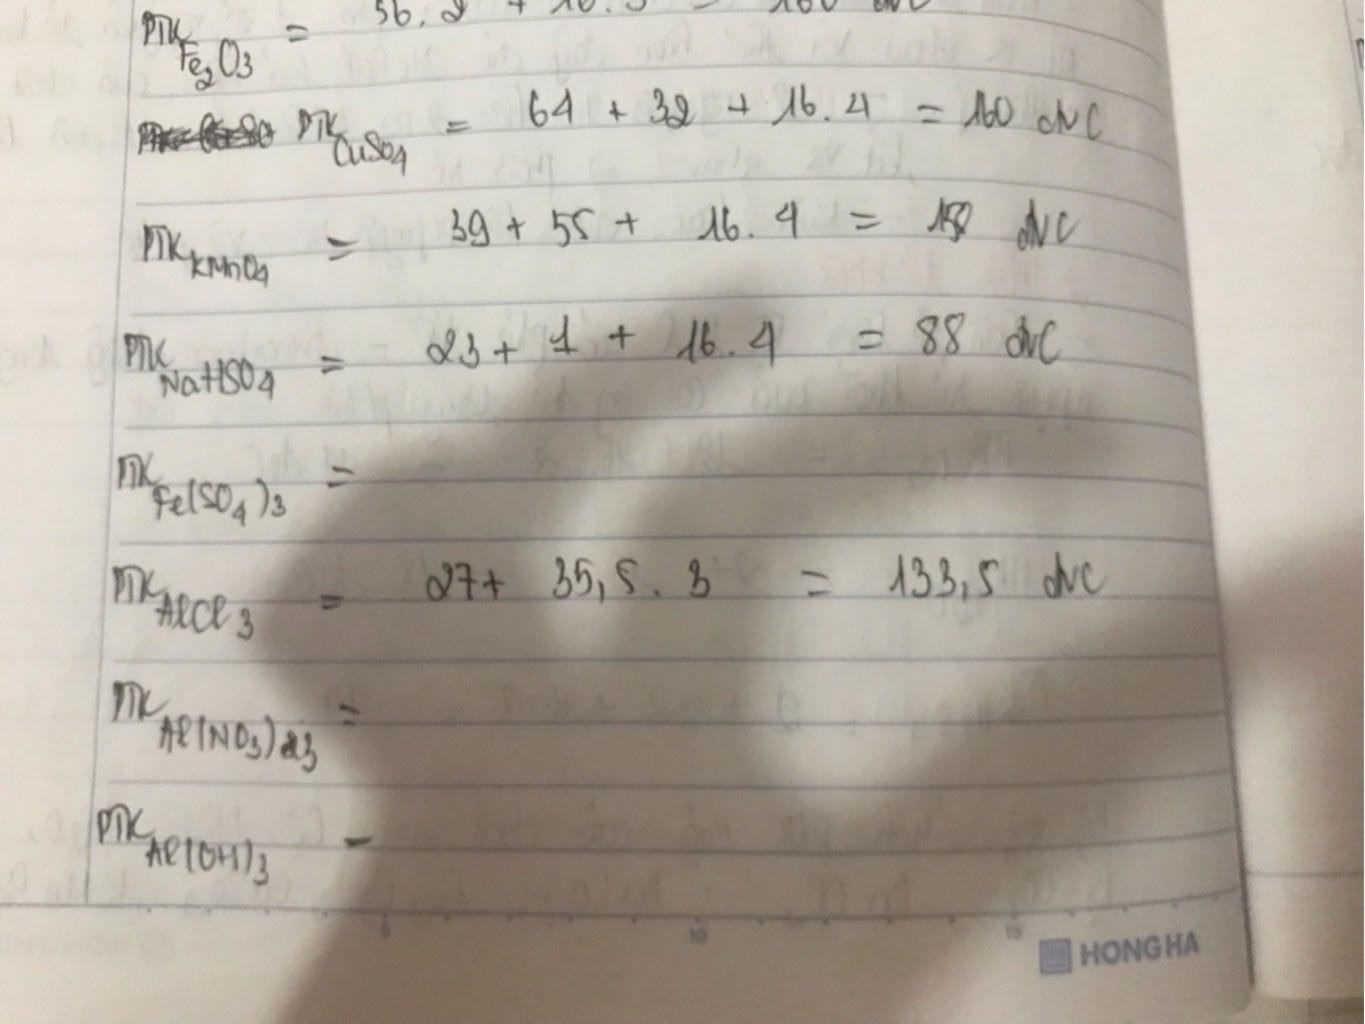 PTK Fe2O3 = 56. 2 + 16. 3 = 160 đvC
PTK CuSO4 = 64 + 32 + 16. 4 = 160 đvC
PTK KMnO4 = 39 + 55 + 16. 4 = 158 đvC
PTK NaHSO4 = 23 + 1 + 16. 4 = 88 đvC
PTK Fe(SO4)3 =
PTK AlCl3 = 27 + 35,5. 3 = 133,5 đvC
PTK Al(NO3)3 =
PTK Al(OH)3 =
5 10 15
HONG HA